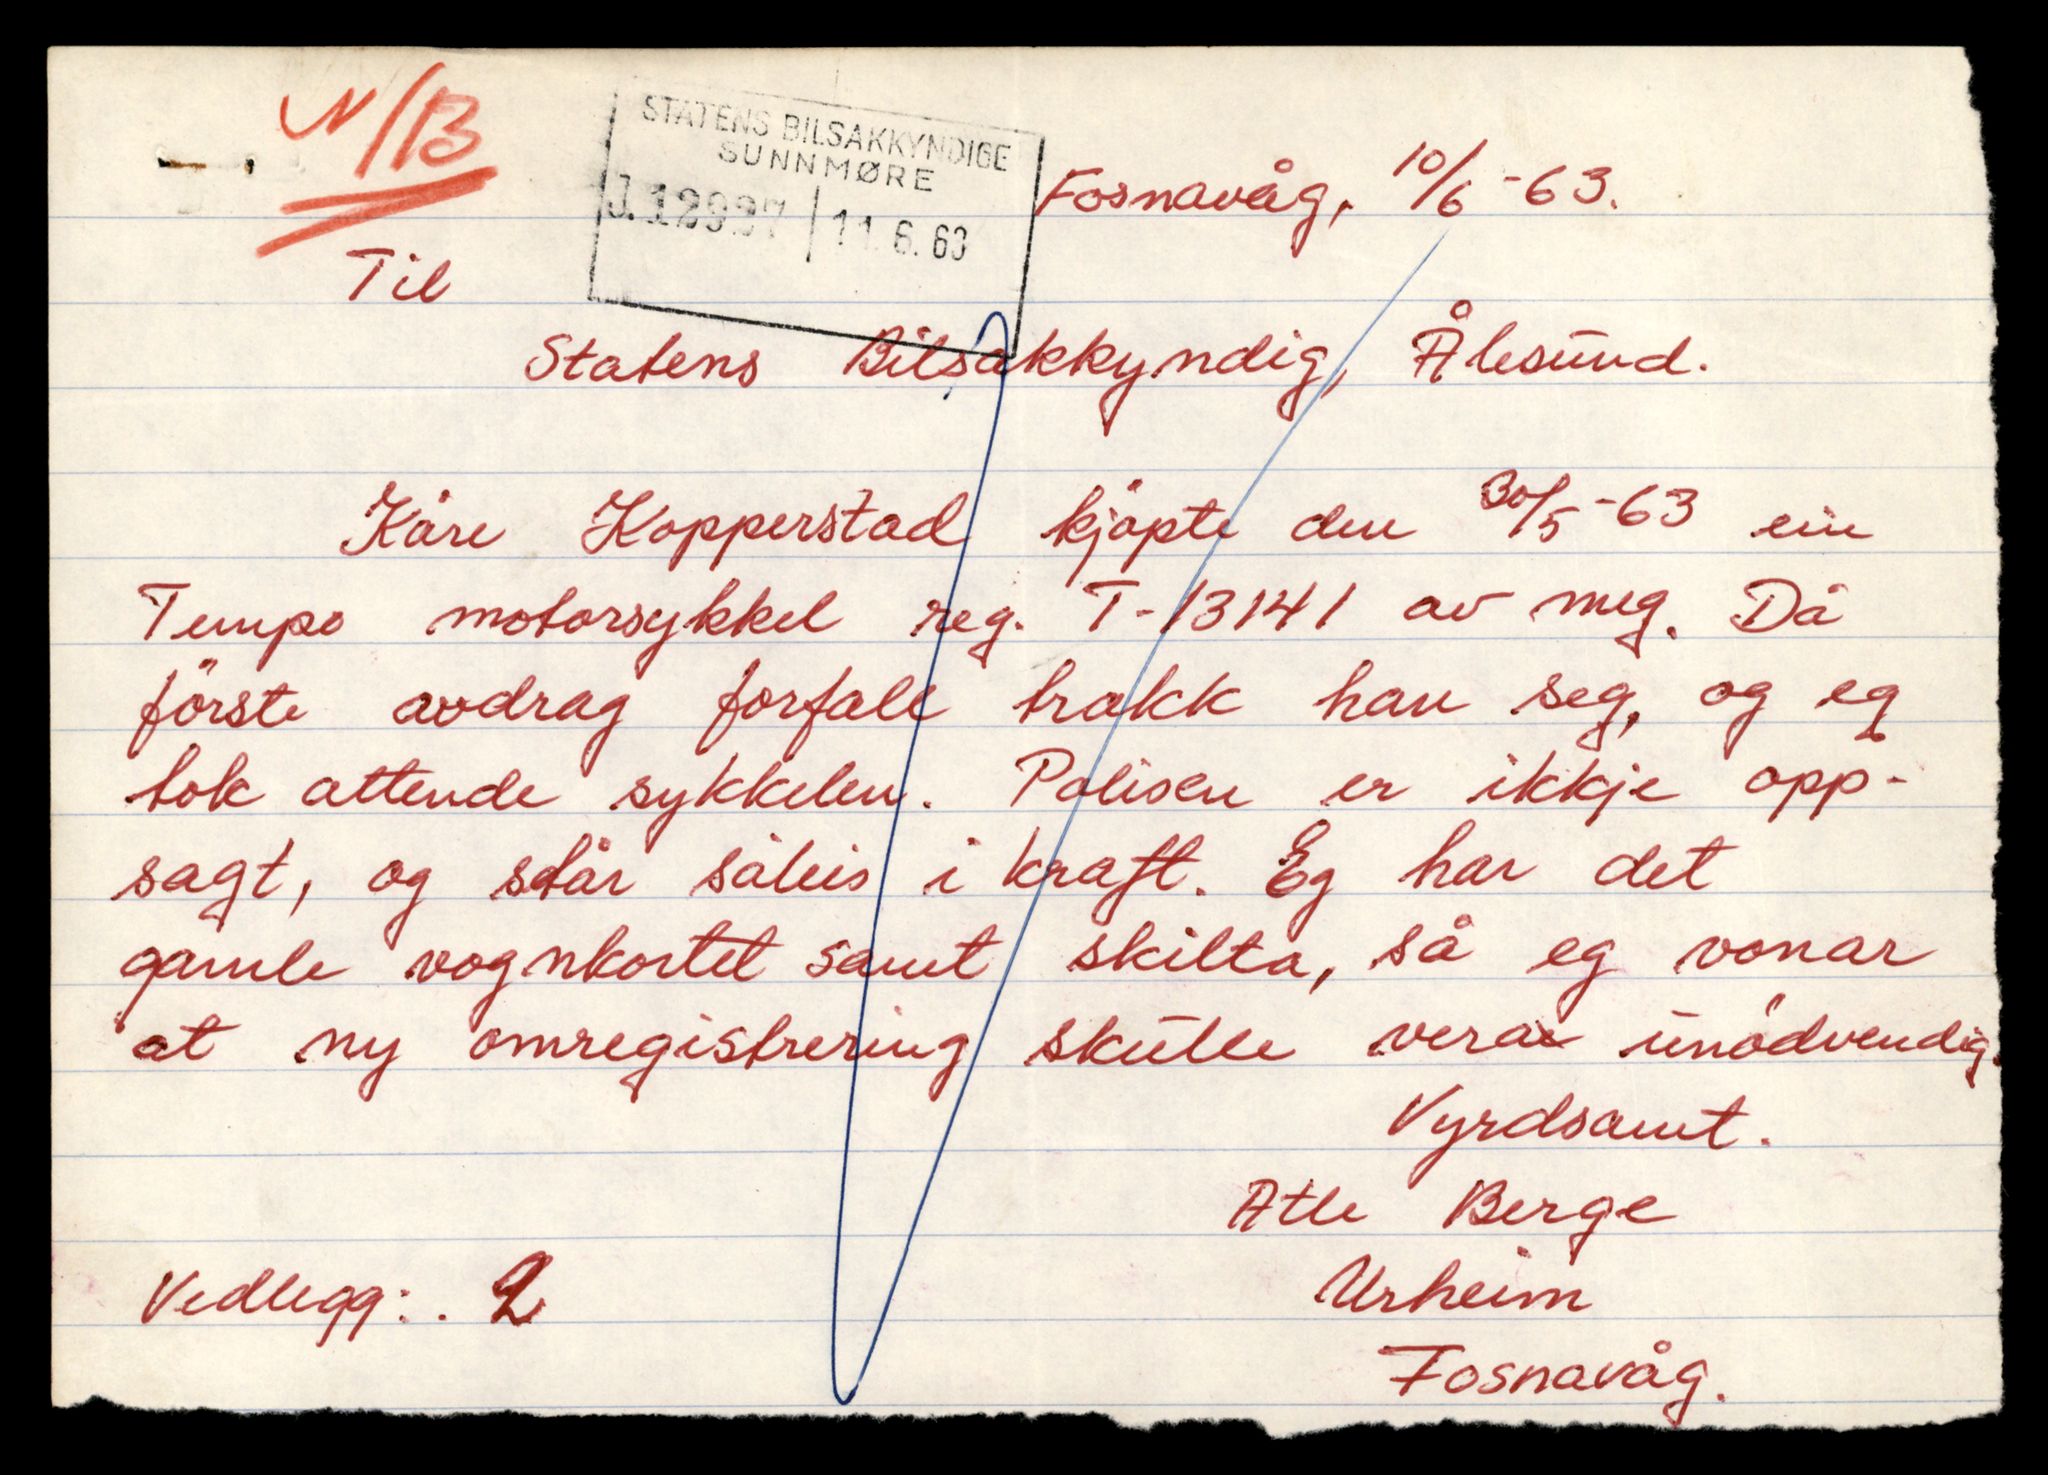 N/B
STATENS BILSAKKYNDIGE
SUNNMØRE
11.6.63
Fosnavåg, 10/6-63.
Til
Statens Bilsakkyndig, Ålesund.
Kåre Kopperstad kjöpte den 30/5-63 ein
Tempo motorsykkel reg. T-13141 av meg. Då
förste avdrag forfall trakk han seg, og eg
tok attende sykkelen. Polisen er ikkje opp-
sagt, og står såleis i kraft. Eg har det
gamle vognkortet samt skilta, så eg vonar
at ny omregistrering skulle vera unödvendig.
Vyrdsamt.
Atle Berge
Urheim
Fosnavåg.
Vedlegg: 2